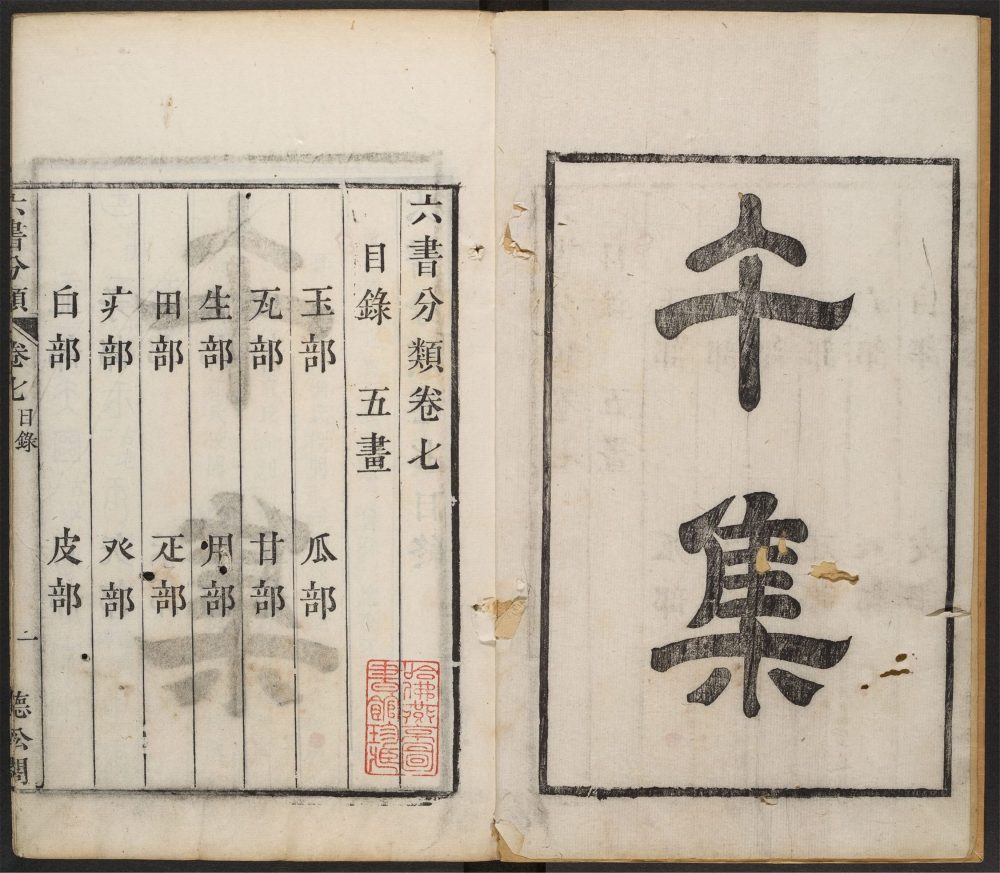 午集
六書分類卷七
目錄 五畫
玉部 瓜部
瓦部 甘部
生部 用部
田部 疋部
疒部 癶部
白部 皮部
六書分類 卷七 目錄 一 聽松閣
哈佛燕京圖
書館珍藏